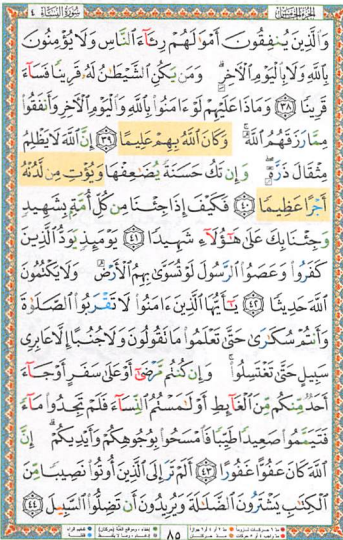 سُورَةُ النِّسَاء ٤ الجُزءُ الخَامِسُ
وَالَّذِينَ يُنفِقُونَ أَمْوَالَهُمْ رِئَاءَ النَّاسِ وَلَا يُؤْمِنُونَ
بِاللَّهِ وَلَا بِالْيَوْمِ الْآخِرِ ۗ وَمَن يَكُنِ الشَّيْطَانُ لَهُ قَرِينًا فَسَاءَ
قَرِينًا ٣٨ وَمَاذَا عَلَيْهِمْ لَوْ ءَامَنُوا بِاللَّهِ وَالْيَوْمِ الْآخِرِ وَأَنفَقُوا
مِمَّا رَزَقَهُمُ اللَّهُ ۚ وَكَانَ اللَّهُ بِهِمْ عَلِيمًا ٣٩ إِنَّ اللَّهَ لَا يَظْلِمُ
مِثْقَالَ ذَرَّةٍ ۖ وَإِن تَكُ حَسَنَةً يُضَاعِفْهَا وَيُؤْتِ مِن لَّدُنْهُ
أَجْرًا عَظِيمًا ٤٠ فَكَيْفَ إِذَا جِئْنَا مِن كُلِّ أُمَّةٍ بِشَهِيدٍ
وَجِئْنَا بِكَ عَلَىٰ هَٰؤُلَاءِ شَهِيدًا ٤١ يَوْمَئِذٍ يَوَدُّ الَّذِينَ
كَفَرُوا وَعَصَوُا الرَّسُولَ لَوْ تُسَوَّىٰ بِهِمُ الْأَرْضُ وَلَا يَكْتُمُونَ
اللَّهَ حَدِيثًا ٤٢ يَا أَيُّهَا الَّذِينَ ءَامَنُوا لَا تَقْرَبُوا الصَّلَوٰةَ
وَأَنتُمْ سُكَارَىٰ حَتَّىٰ تَعْلَمُوا مَا تَقُولُونَ وَلَا جُنُبًا إِلَّا عَابِرِي
سَبِيلٍ حَتَّىٰ تَغْتَسِلُوا ۚ وَإِن كُنتُم مَّرْضَىٰ أَوْ عَلَىٰ سَفَرٍ أَوْ جَاءَ
أَحَدٌ مِّنكُم مِّنَ الْغَائِطِ أَوْ لَامَسْتُمُ النِّسَاءَ فَلَمْ تَجِدُوا مَاءً
فَتَيَمَّمُوا صَعِيدًا طَيِّبًا فَامْسَحُوا بِوُجُوهِكُمْ وَأَيْدِيكُمْ ۗ إِنَّ
اللَّهَ كَانَ عَفُوًّا غَفُورًا ٤٣ أَلَمْ تَرَ إِلَى الَّذِينَ أُوتُوا نَصِيبًا مِّنَ
الْكِتَابِ يَشْتَرُونَ الضَّلَالَةَ وَيُرِيدُونَ أَن تَضِلُّوا السَّبِيلَ ٤٤
٨٥